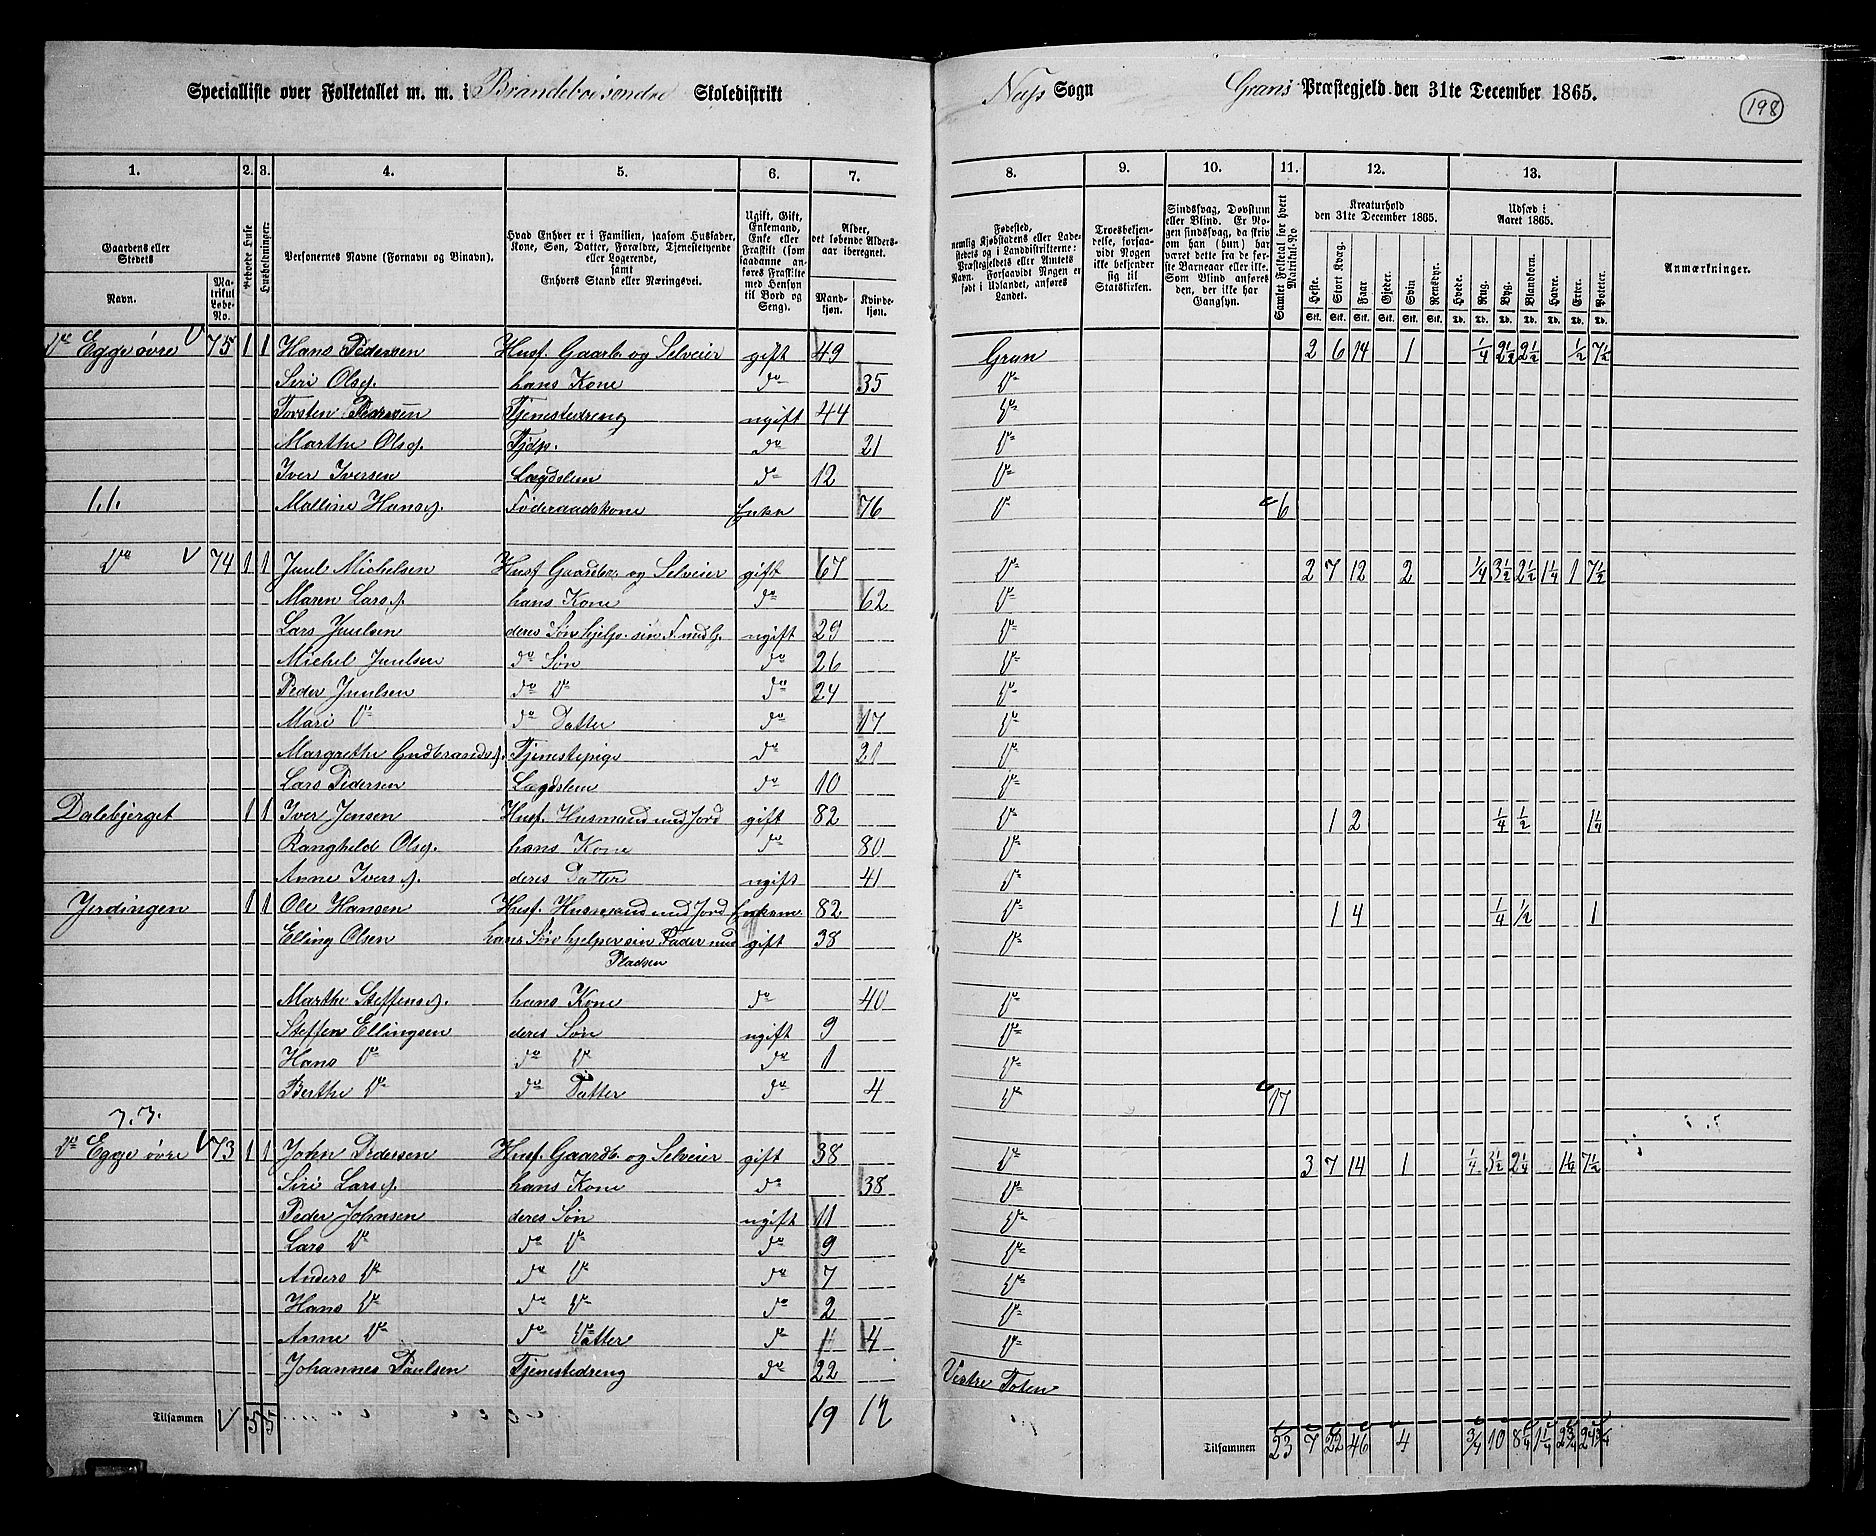 Specialliste over Folketallet m. m. i Brandeboesøndre Skoledistrikt Næss Sogn Grans Præstegjeld den 31te December 1865.
198
1. 2. 3. 4. 5. 6. 7. 8. 9. 10. 11. 12. 13.
Gaardens eller Stedets
Navn.
Matrikul Løbe-No.
Beboede Huse
Husholdninger.
Personernes Navne (Fornavn og Binavn).
Hvad Enhver er i Familien, saasom Husfader,
Kone, Søn, Datter, Forældre, Tjenestetyende
eller Logerende,
samt
Enhvers Stand eller Næringsvei.
Ugift, Gift,
Enkemand,
Enke eller
Fraskilt (som
saadanne anføres
Fraskilte
med Hensyn
til Bord og
Seng).
Alder,
det løbende Aldersaar
iberegnet.
Mandkjøn.
Kvindekjøn.
Fødested,
nemlig Kjøbstadens eller Ladestedets
eller i Landdistrikterne:
Præstegjeldets eller Amtets
Navn. Forsaavidt Nogen er
født i Udlandet, anføres
Landet.
Troesbekjendelse,
forsaavidt
Nogen
ikke bekjender
sig til
Statskirken.
Sindssvag, Døvstum
eller Blind. Er Nogen
sindssvag, da skriv
om han (hun) har
været dette fra de første
Barneaar eller ikke.
Som Blind anføres
den, der ikke har
Gangsyn.
Samlet Folketal for hvert Matrikul-No.
Kreaturhold
den 31te December 1865.
Heste. Stort Kvæg. Faar Gjeder. Svin Rensdyr.
Stk. Stk. Stk. Stk. Stk. Stk.
Udsæd i
Aaret 1865.
Hvede. Rug. Byg. Blandkorn. Havre. Erter. Poteter.
Td. Td. Td. Td. Td. Td. Td.
Anmærkninger.
Do Egge øvre V 75 1 1 Hans Pedersen Husf. Gaardb. og Selveier gift 49 Gran 2 6 14 1 1/4 2 1/2 2 1/2 1/2 7 1/2
Siri Olsd. hans Kone do 35 Do
Torsten Pedersen Tjenestedreng ugift 44 Do
Marthe Olsd. Tjdp. do 21 Do
Iver Iversen Lægdslem do 12 Do
1.1. Malline Hansd. Føderaadskone Enke 76 Do 6
Do V 74 1 1 Juul Michelsen Husf Gaardbr. og Selveier gift 67 Do 2 7 12 2 1/4 3 1/2 2 1/2 1 1/4 1 7 1/2
Maren Larsd. hans Kone do 62 Do
Lars Juulsen deres Søn hjelp. sin F. med G. ugift 29 Do
Michel Juulsen do Søn do 26 Do
Peder Juulsen do Do do 24 Do
Mari Do do Datter do 17 Do
Margrethe Gudbrandsd. Tjenestepige do 21 Do
Lars Pedersen Lægdslem do 10 Do
Dalebjerget 1 1 Iver Jensen Husf. Husmand med Jord gift 82 Do 1 2 1/4 1/2 1 1/4
Ranghild Olsd. hans Kone do 80 Do
Anne Iversd. deres Datter ugift 41 Do
Jerdingen 1 1 Ole Hansen Husf. Husmand med Jord Enkem 82 Do 1 4 1/4 1/2 1
Elling Olsen hans Søn hjelper sin Fader med gift 38 Do
Pladsen
Marthe Steffensd. hans Kone do 40 Do
Steffen Ellingsen deres Søn ugift 9 Do
Hans Do do Do do 1 Do
Berthe Do do Datter do 4 Do 17
3.3.
Do Egge øvre V 73 1 1 John Pedersen Husf. Gaardb. og Selveier gift 38 Do 3 7 14 1 1/4 3 1/2 2 1/4 1 1/4 7 1/2
Siri Larsd. hans Kone do 38 Do
Peder Johnsen deres Søn ugift 11 Do
Lars Do do Do do 9 Do
Anders Do do Do do 7 Do
Hans Do do Do do 2 Do
Anne Do do Datter do 4 Do
Johannes Paulsen Tjenestedreng do 22 Vestre Toten
Tilsammen V 5 5 19 12 Tilsammen 23 7 22 46 4 3/4 10 8 1/4 1 1/4 2 3/4 24 3/4